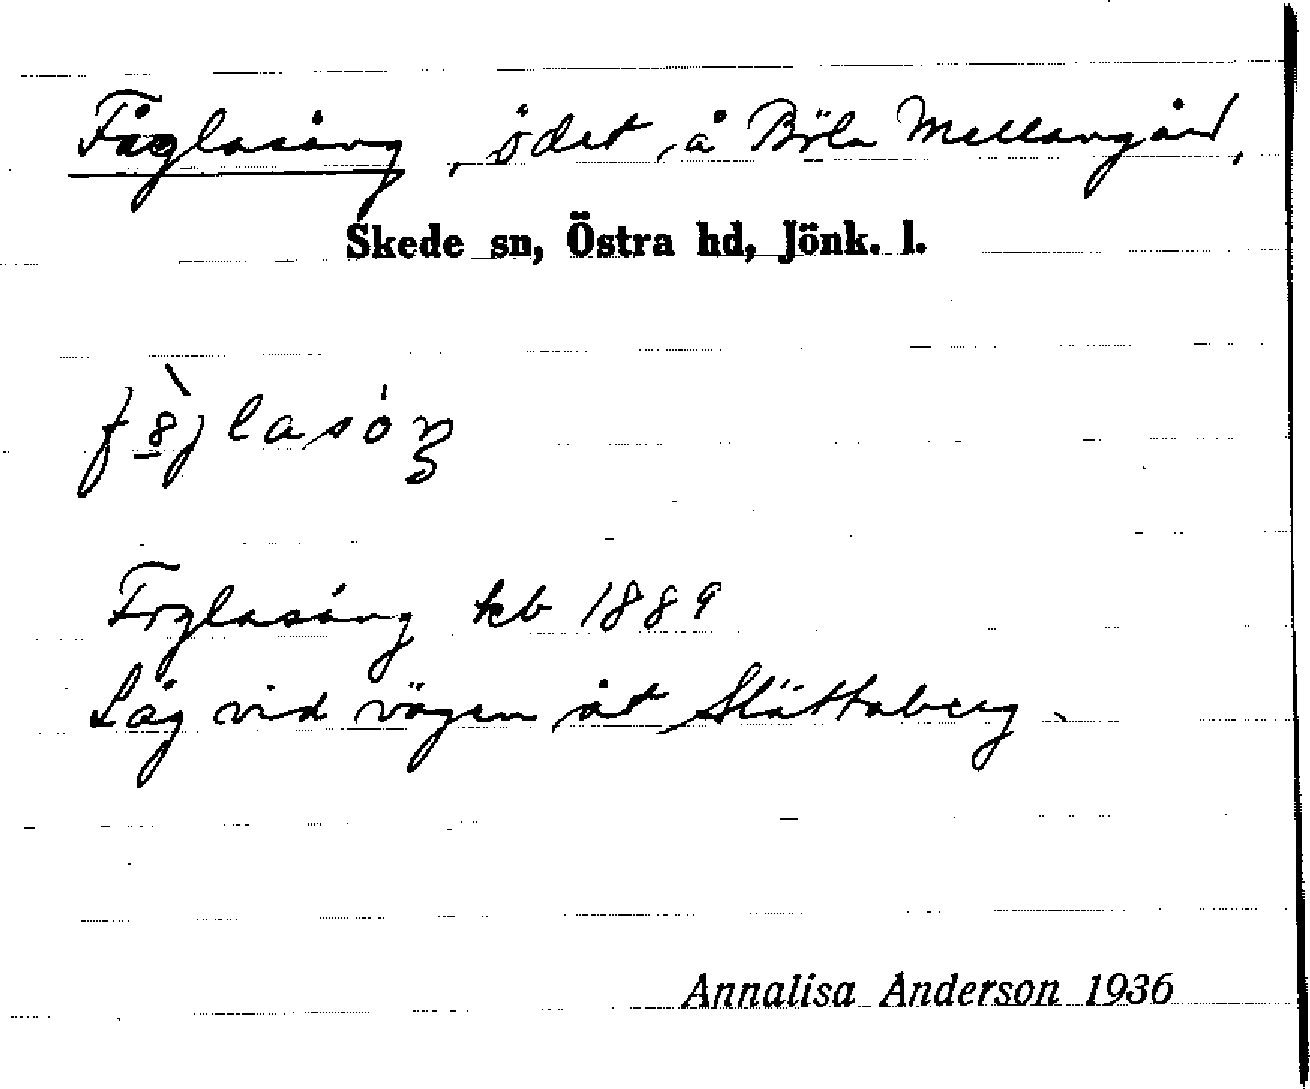 Fåglasång, ödet, å Böla Mellangård,
Skede sn, Östra hd, Jönk. l.
Foglasång kb 1889
Låg vid vägen åt Slättaberg.
Annalisa Anderson 1936